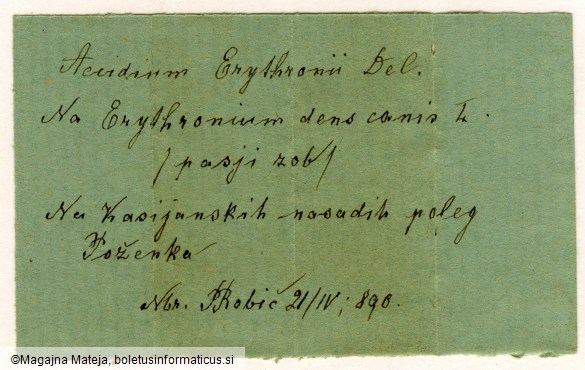 Aecidium Erythronii Del.
Na Erythronium dens canis L.
/ pasji zob /
Na Kasijanskih nasadih poleg
Poženka
Nbr. P Robič 21/IV; 890.
©Magajna Mateja, boletusinformaticus.si